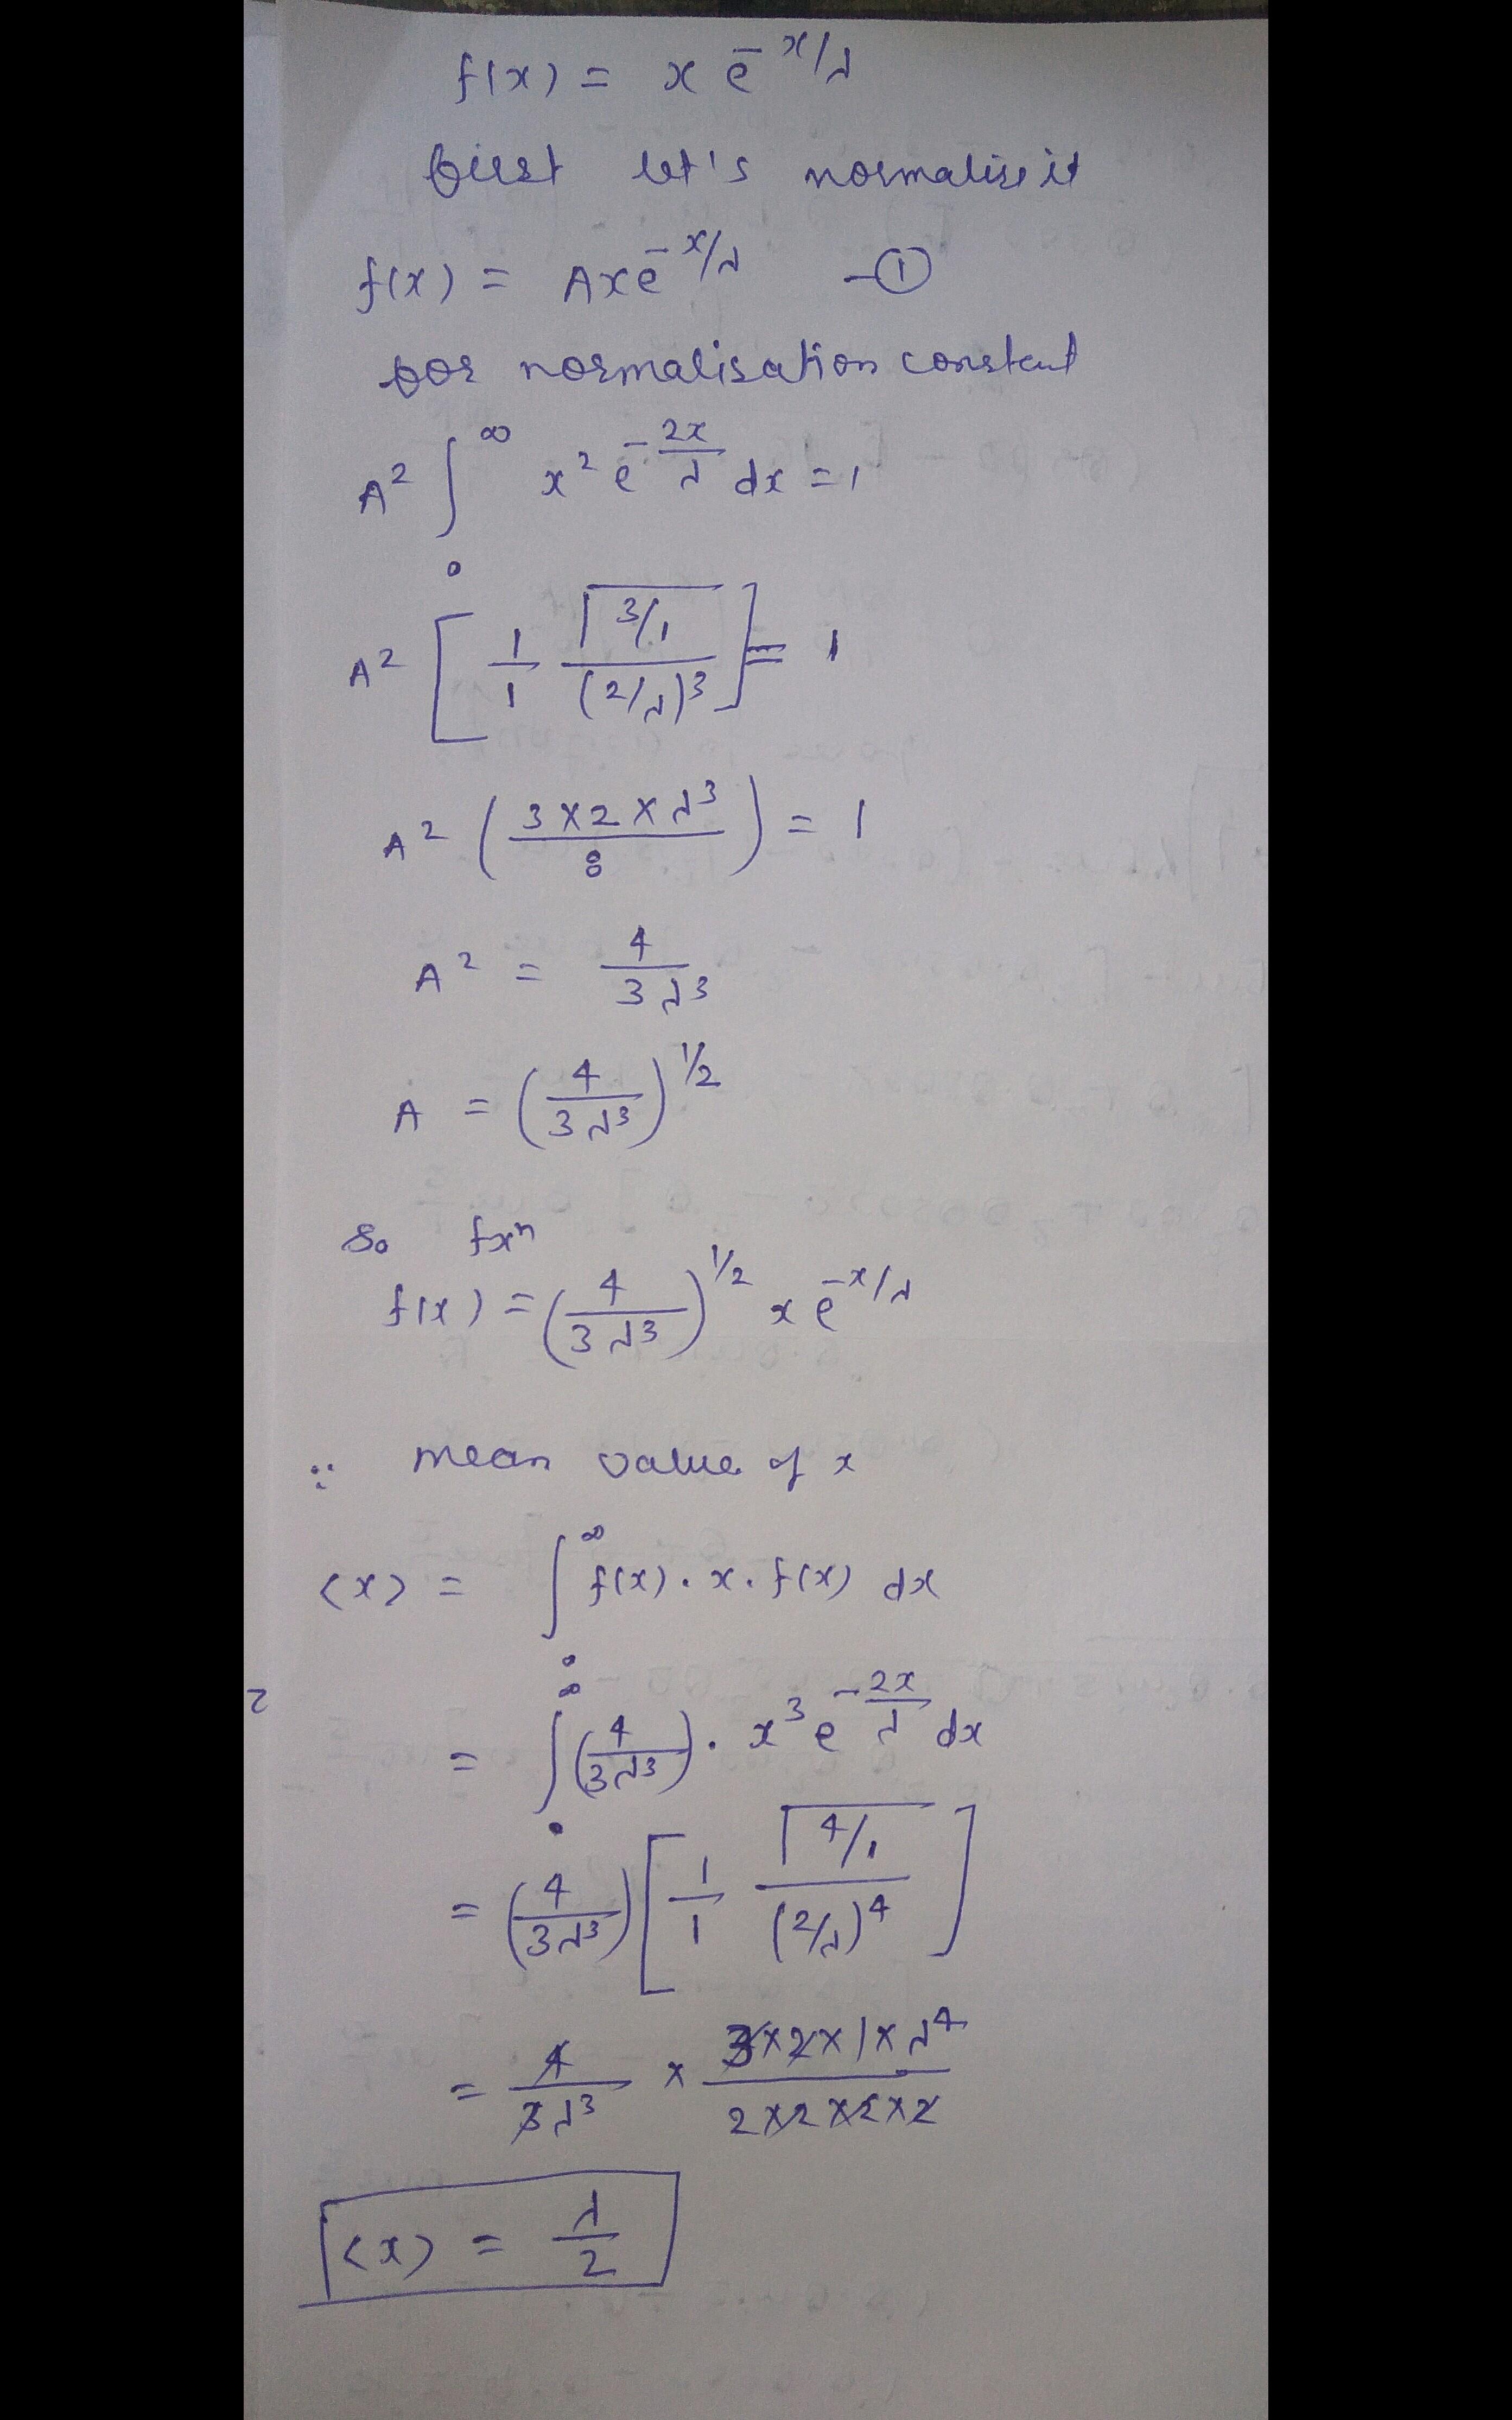 f(x) = x e^{-x/λ}
first let's normalise it
f(x) = A x e^{-x/λ} —①
for normalisation constant
A² ∫₀^∞ x² e^{-2x/λ} dx = 1
A² [ 1/1 Γ3/1 / (2/λ)³ ] = 1
A² ( 3×2×λ³ / 8 ) = 1
A² = 4 / 3λ³
A = ( 4 / 3λ³ )^{1/2}
So fxⁿ
f(x) = ( 4 / 3λ³ )^{1/2} x e^{-x/λ}
∵ mean value of x
<x> = ∫₀^∞ f(x) . x . f(x) dx
= ∫₀^∞ ( 4 / 3λ³ ) . x³ e^{-2x/λ} dx
= ( 4 / 3λ³ ) [ 1/1 Γ4/1 / (2/λ)⁴ ]
= 4 / 3λ³ × 3×2×1×λ⁴ / 2×2×2×2
<x> = λ/2